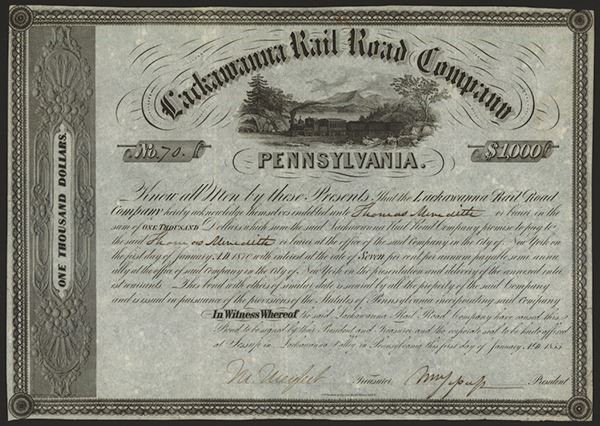 Lackawanna Rail Road Company
No. 70.
$1000
PENNSYLVANIA.
ONE THOUSAND DOLLARS.
Know all Men by these Presents That the Lackawanna Rail Road
Company hereby acknowledge themselves indebted unto Thomas Meredith or bearer in the
sum of ONE THOUSAND Dollars which sum the said Lackawanna Rail Road Company promise to pay to
the said Thomas Meredith or bearer at the office of the said Company in the City of New York on
the first day of January A.D. with interest at the rate of Seven per cent per annum payable semi annu-
ally at the office of said Company in the City of New York on the presentation and delivery of the annexed inter-
est warrants. This bond with others of similar date is secured by all the property of the said Company
and is issued in pursuance of the provisions of the Statutes of Pennsylvania incorporating said Company
In Witness Whereof the said Lackawanna Rail Road Company have caused this
Bond to be signed by their President and Treasurer and the corporate seal to be hereto affixed
at Jessup in Lackawanna Valley, in Pennsylvania this first day of January A.D. 1855
Treasurer
President